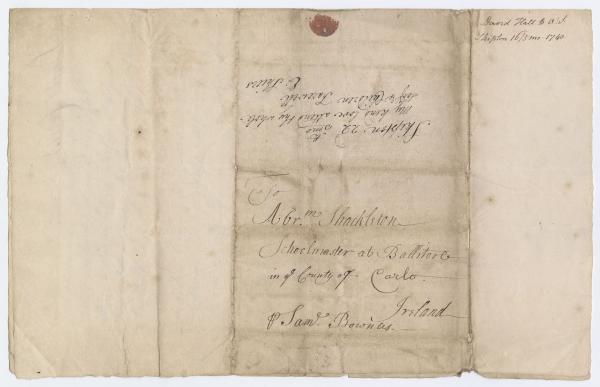 David Hall to A.S.
Skipton 16/3mo. 1740
Skipton 22
my kind love attend the whole
Children Farewell
To
Abr.m Shackleton
Schoolmaster at Ballitore
in ye County of Carlo
Ireland
P Sam.l Bownas.